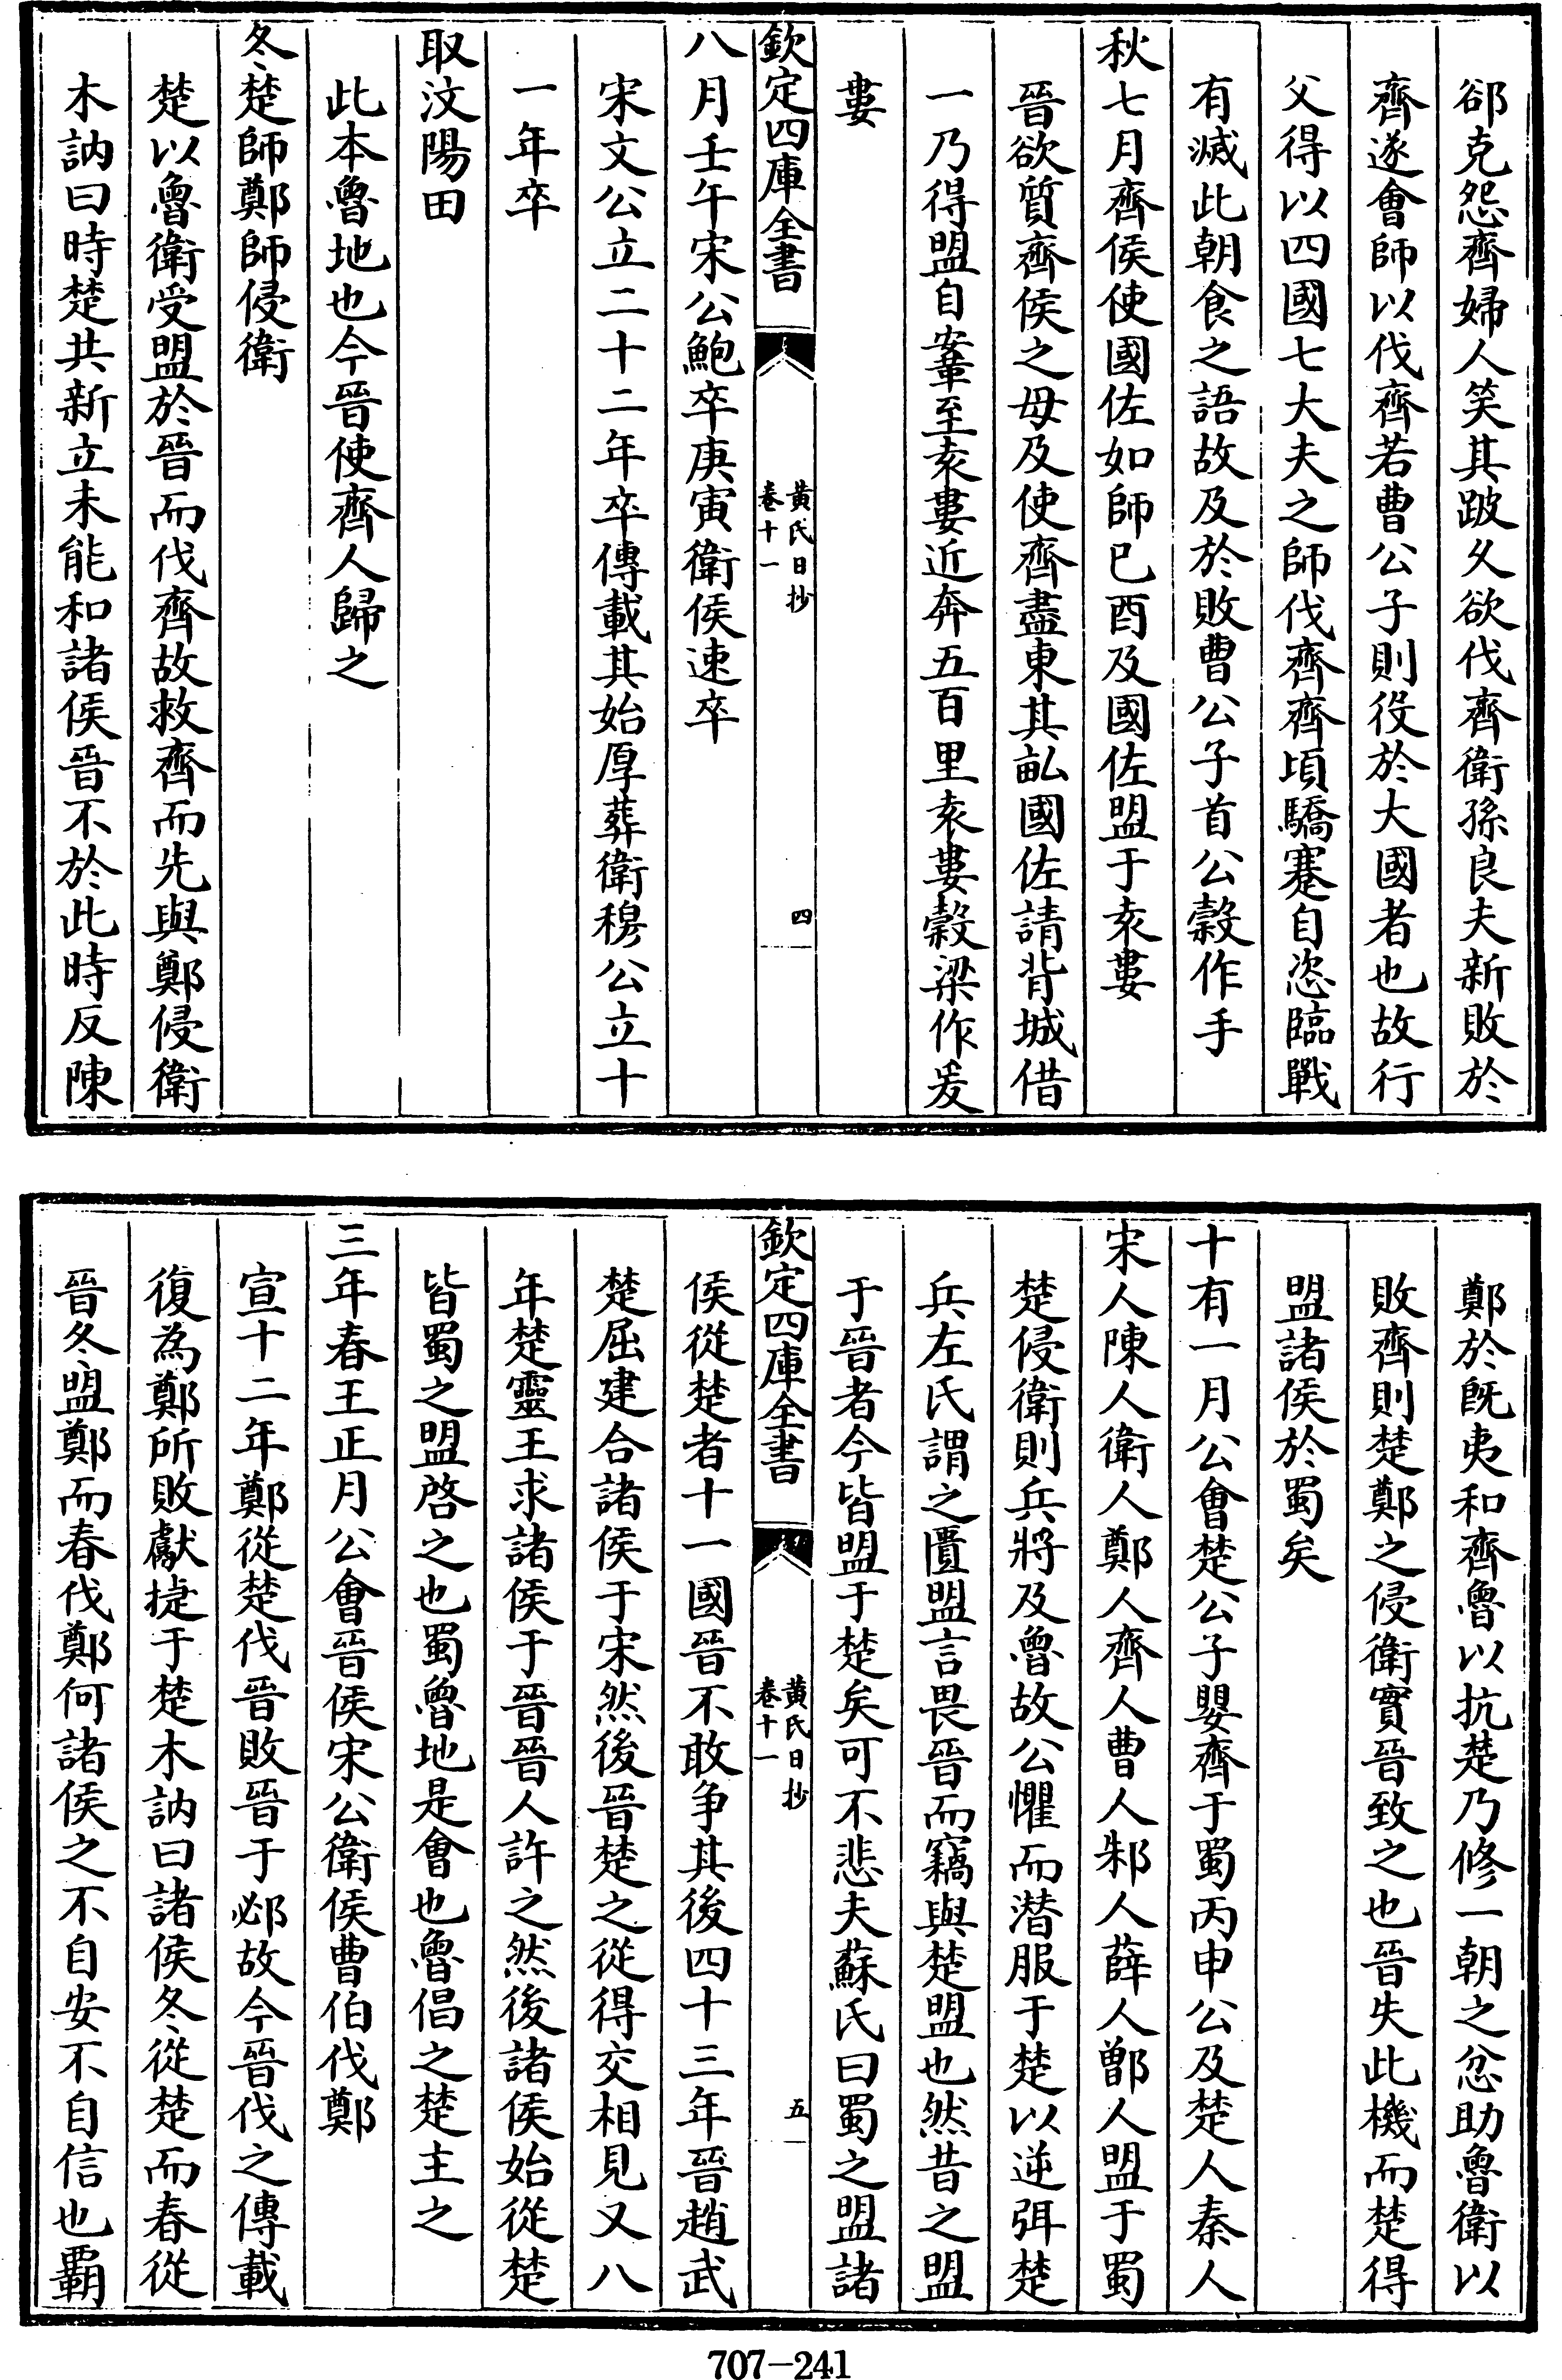 郤克怨齊婦人笑其跛久欲伐齊衛孫良夫新敗於
齊遂會師以伐齊若曹公子則役於大國者也故行
父得以四國七大夫之師伐齊齊頃驕蹇自恣臨戰
有滅此朝食之語故及於敗曹公子首公穀作手
秋七月齊侯使國佐如師已酉及國佐盟于袁婁
晉欲質齊侯之母及使齊盡東其畝國佐請背城借
一乃得盟自鞌至袁婁近奔五百里袁婁穀梁作爰
婁
欽定四庫全書
黄氏日抄
卷十一
四
八月壬午宋公鮑卒庚寅衛侯速卒
宋文公立二十二年卒傳載其始厚葬衛穆公立十
一年卒
取汶陽田
此本魯地也今晉使齊人歸之
冬楚師鄭師侵衛
楚以魯衛受盟於晉而伐齊故救齊而先與鄭侵衛
木訥曰時楚共新立未能和諸侯晉不於此時反陳
鄭於旣夷和齊魯以抗楚乃修一朝之忿助魯衛以
敗齊則楚鄭之侵衛實晉致之也晉失此機而楚得
盟諸侯於蜀矣
十有一月公會楚公子嬰齊于蜀丙申公及楚人秦人
宋人陳人衛人鄭人齊人曹人邾人薛人鄫人盟于蜀
楚侵衛則兵將及魯故公懼而潜服于楚以逆弭楚
兵左氏謂之匱盟言畏晉而竊與楚盟也然昔之盟
于晉者今皆盟于楚矣可不悲夫蘇氏曰蜀之盟諸
欽定四庫全書
黄氏日抄
卷十一
五
侯從楚者十一國晉不敢争其後四十三年晉趙武
楚屈建合諸侯于宋然後晉楚之從得交相見又八
年楚靈王求諸侯于晉晉人許之然後諸侯始從楚
皆蜀之盟啓之也蜀魯地是會也魯倡之楚主之
三年春王正月公會晉侯宋公衛侯曹伯伐鄭
宣十二年鄭從楚伐晉敗晉于邲故今晉伐之傳載
復為鄭所敗獻捷于楚木訥曰諸侯冬從楚而春從
晉冬盟鄭而春伐鄭何諸侯之不自安不自信也覇
707-241